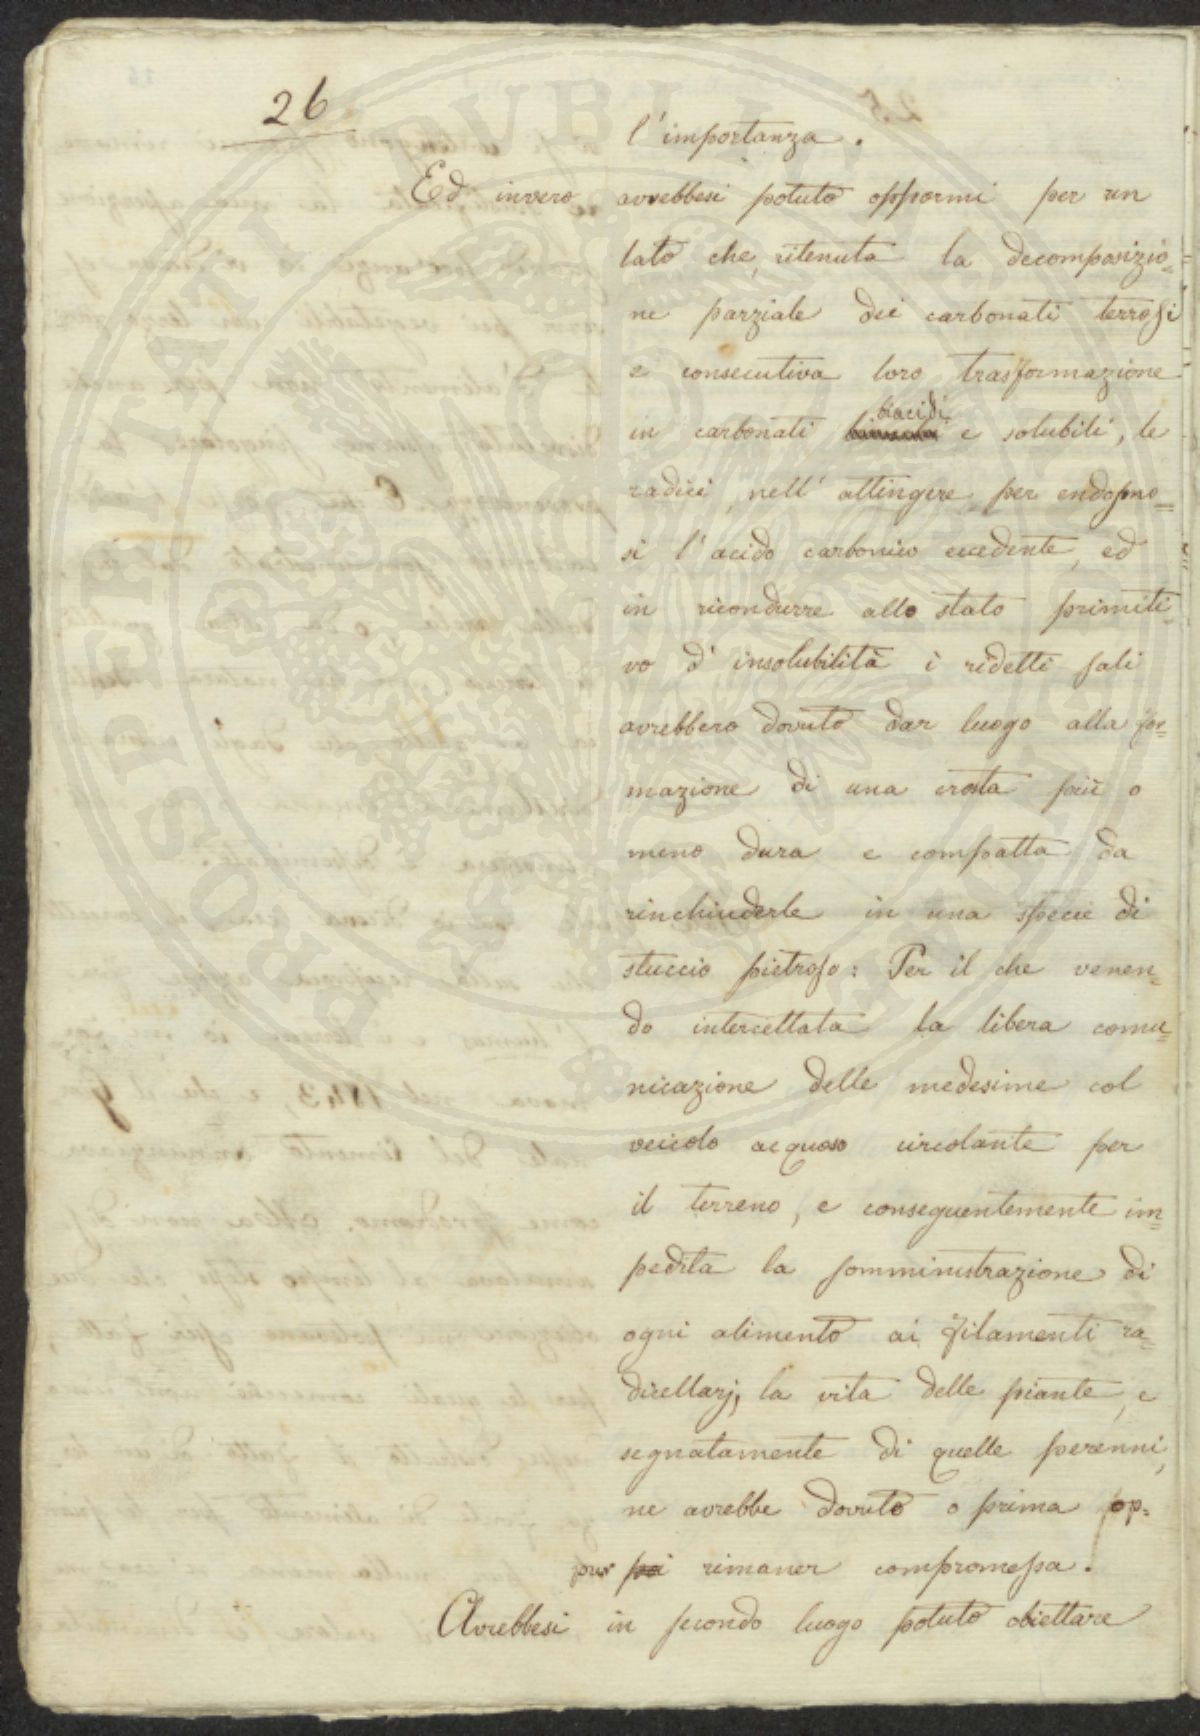 26
l'importanza.
Ed invero avrebbesi potuto oppormi per un
lato che, ritenuta la decomposizio=
ne parziale dei carbonati terrosi
e consecutiva loro trasformazione
in carbonati biacidi e solubili, le
radici, nell'attingere per endosmo=
si l'acido carbonico eccedente, ed
in ricondurre allo stato primiti=
vo d'insolubilità i ridetti sali
avrebbero dovuto dar luogo alla for=
mazione di una crosta più o
meno dura e compatta da
rinchiuderle in una specie di
stuccio pietroso: Per il che venen=
do intercettata la libera comu=
nicazione delle medesime col
veicolo acquoso circolante per
il terreno, e conseguentemente im=
pedita la somministrazione di
ogni alimento ai filamenti ra=
dicellarj, la vita delle piante, e
segnatamente di quelle perenni,
ne avrebbe dovuto o prima op=
pur poi rimaner compromessa.
Avrebbesi in secondo luogo potuto obiettare
PROSPERITATI PUBLICAE